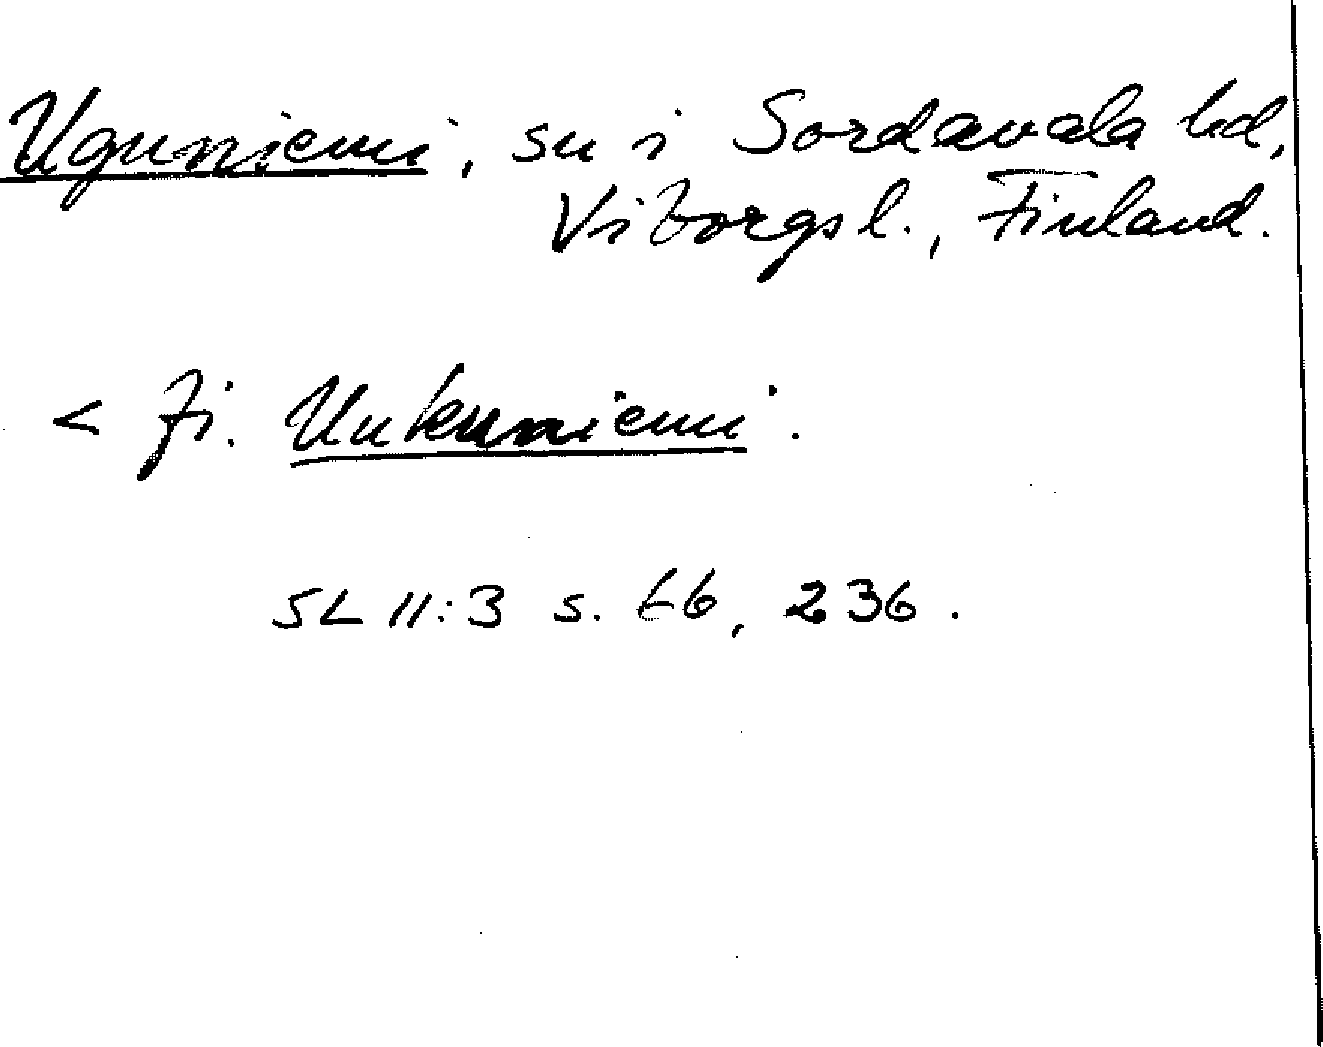 Uguniemi, sn i Sordavala hd,
Viborgs l., Finland.
< fi. Unkuniemi.
SL 11:3 s. 66, 236.